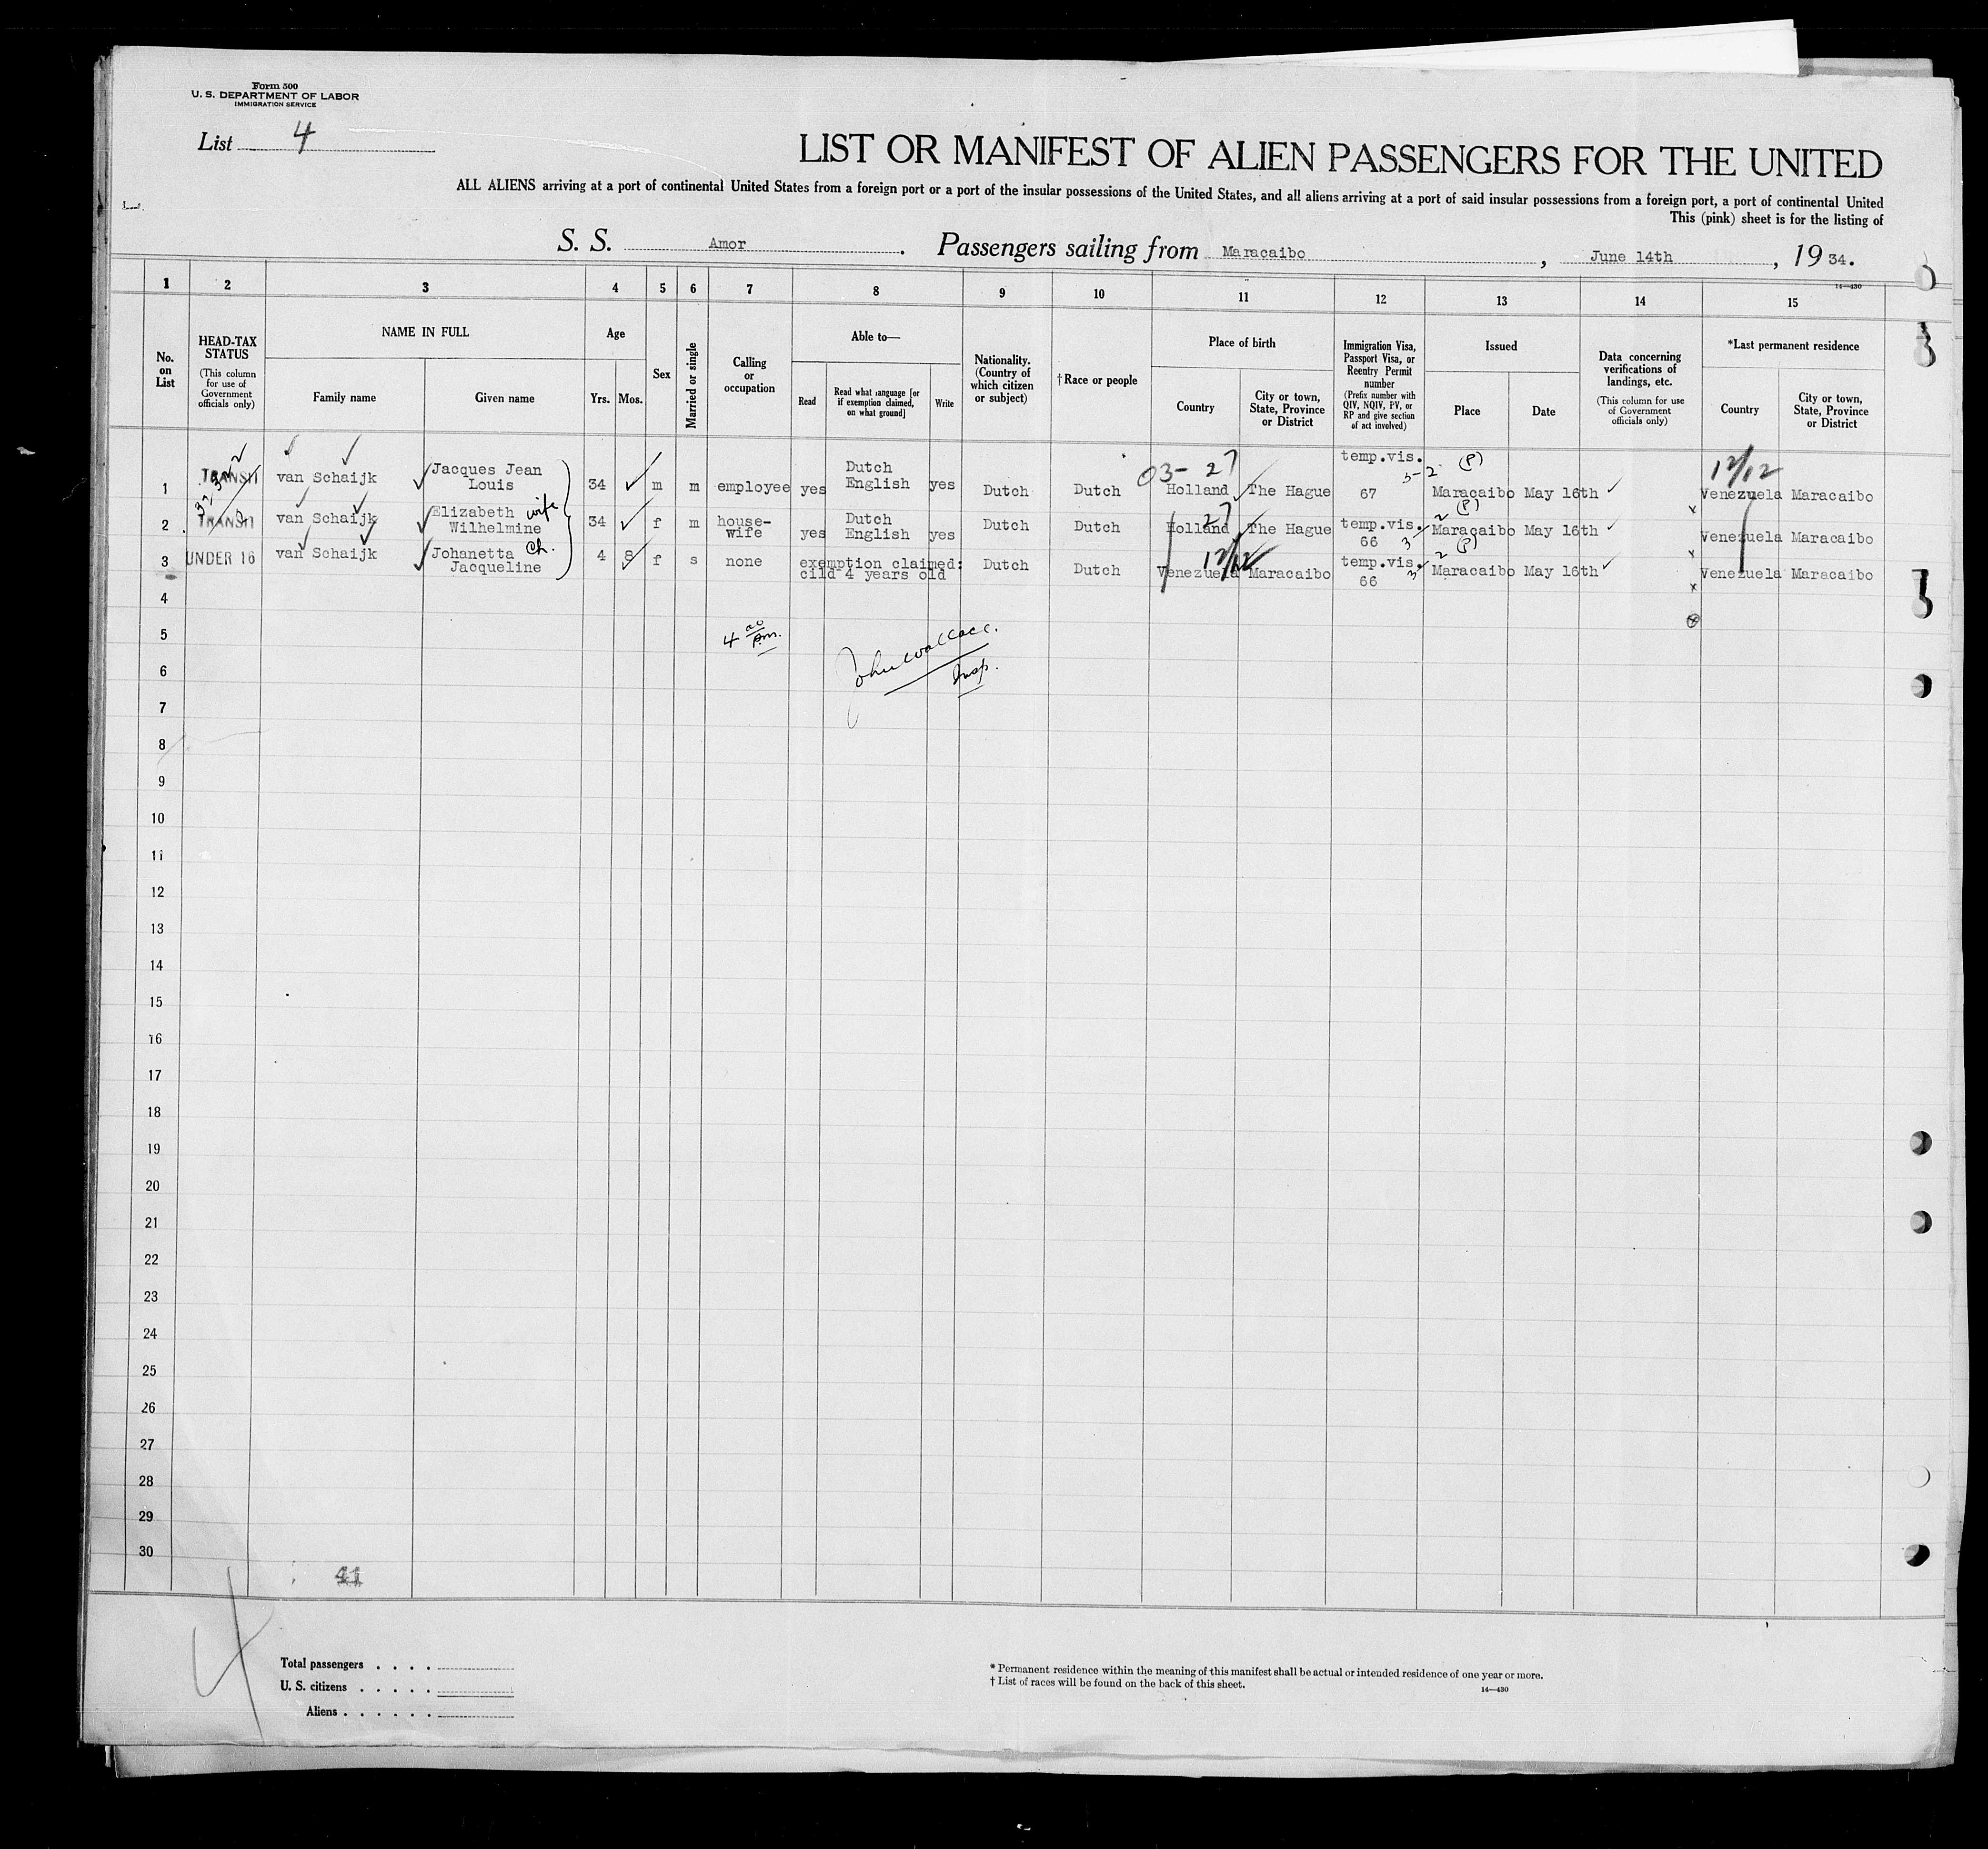 Form 500
U. S. DEPARTMENT OF LABOR
IMMIGRATION SERVICE
List 4
LIST OR MANIFEST OF ALIEN PASSENGERS FOR THE UNITED
ALL ALIENS arriving at a port of continental United States from a foreign port or a port of the insular possessions of the United States, and all aliens arriving at a port of said insular possessions from a foreign port, a port of continental United
This (pink) sheet is for the listing of
S. S. Amor. Passengers sailing from Maracaibo, June 14th, 1934.
14—430
1 2 3 4 5 6 7 8 9 10 11 12 13 14 15
No. on List
HEAD-TAX STATUS (This column for use of Government officials only)
NAME IN FULL
Family name
Given name
Age
Yrs. Mos.
Sex
Married or single
Calling or occupation
Able to—
Read
Read what language [or if exemption claimed, on what ground]
Write
Nationality. (Country of which citizen or subject)
†Race or people
Place of birth
Country
City or town, State, Province or District
Immigration Visa, Passport Visa, or Reentry Permit number (Prefix number with QIV, NQIV, PV, or RP and give section of act involved)
Issued
Place
Date
Data concerning verifications of landings, etc. (This column for use of Government officials only)
*Last permanent residence
Country
City or town, State, Province or District
03- 27 12/12
1 TRANSIT van Schaijk Jacques Jean Louis 34 m m employee yes Dutch English yes Dutch Dutch Holland The Hague temp.vis. 67 5-2 (P) Maracaibo May 16th Venezuela Maracaibo
2 TRANSIT van Schaijk Elizabeth Wilhelmine wife 34 f m house-wife yes Dutch English yes Dutch Dutch Holland 27 The Hague temp.vis. 66 3-2 (P) Maracaibo May 16th x Venezuela Maracaibo
3 UNDER 16 van Schaijk Johanetta Jacqueline ch. 4 8 f s none exemption claimed: cild 4 years old Dutch Dutch Venezuela 12/12 Maracaibo temp.vis. 66 3-2 (P) Maracaibo May 16th x Venezuela Maracaibo
4 x
5 4 00 pm. John Wallace
6 Insp.
7
8
9
10
11
12
13
14
15
16
17
18
19
20
21
22
23
24
25
26
27
28
29
30
41
4
Total passengers . . . .
U. S. citizens . . . . .
Aliens . . . . . .
* Permanent residence within the meaning of this manifest shall be actual or intended residence of one year or more.
† List of races will be found on the back of this sheet.
14—430